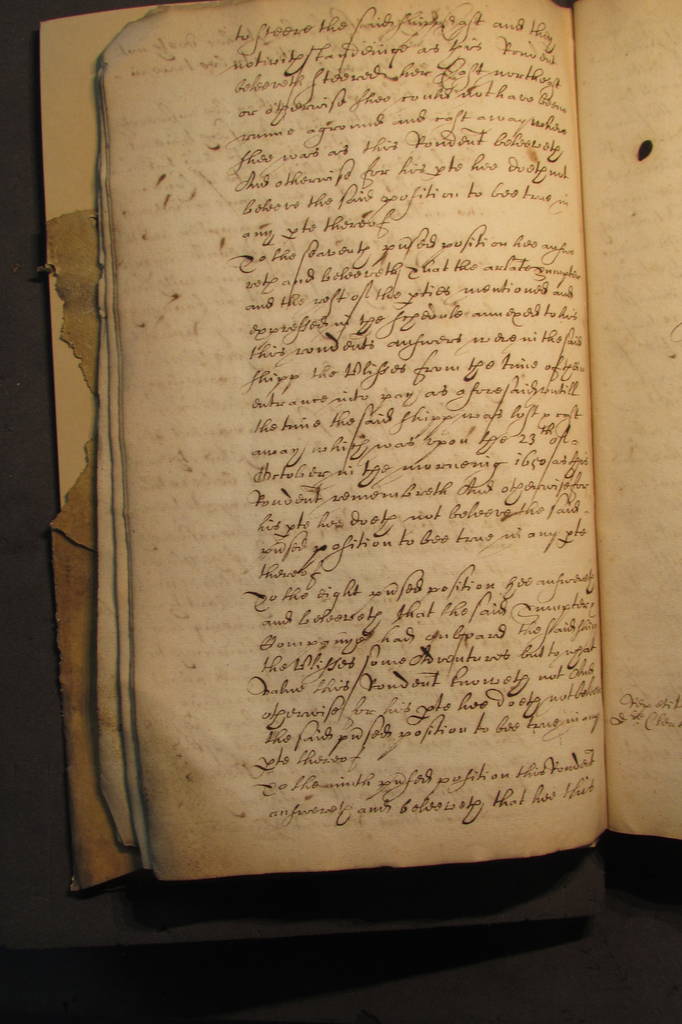 to steere the said shipp East and they
notwithstandeinge as this Rondent
beleeveth steered her East northest
or otherwise shee could not have beene
runne aground and cast away where
shee was as this Rondent beleeveth
And otherwise for his pte hee doeth not
beleeve the said position to bee true in
any pte thereof
To the seaventh pnsed position hee answe
reth and beleeveth That the arlate Sumpter
and the rest of the pties mentioned and
expressed in the schedule annexed to his
this rondents answers were in the said
shipp the Ulisses from the time of their
entrance into pay as aforesaid untill
the time the said shipp was lost & cast
away which was upon the 23th of
October in the morneing 1650 as this
Rondent remembreth And otherwise for
his pte hee doeth not beleeve the said
pnsed position to bee true in any pte
thereof
To the eight pnsed position hee answereth
and beleeveth that the said Sumpter
Company had onboard the said shipp
the Ulisses some Adventures but to what
value this Rondent knoweth not And
otherwise for his pte hee doeth not beleeve
the said pnsed position to bee true in any
pte thereof
To the ninth pnsed position this Rondent
answereth and beleeveth that hee this